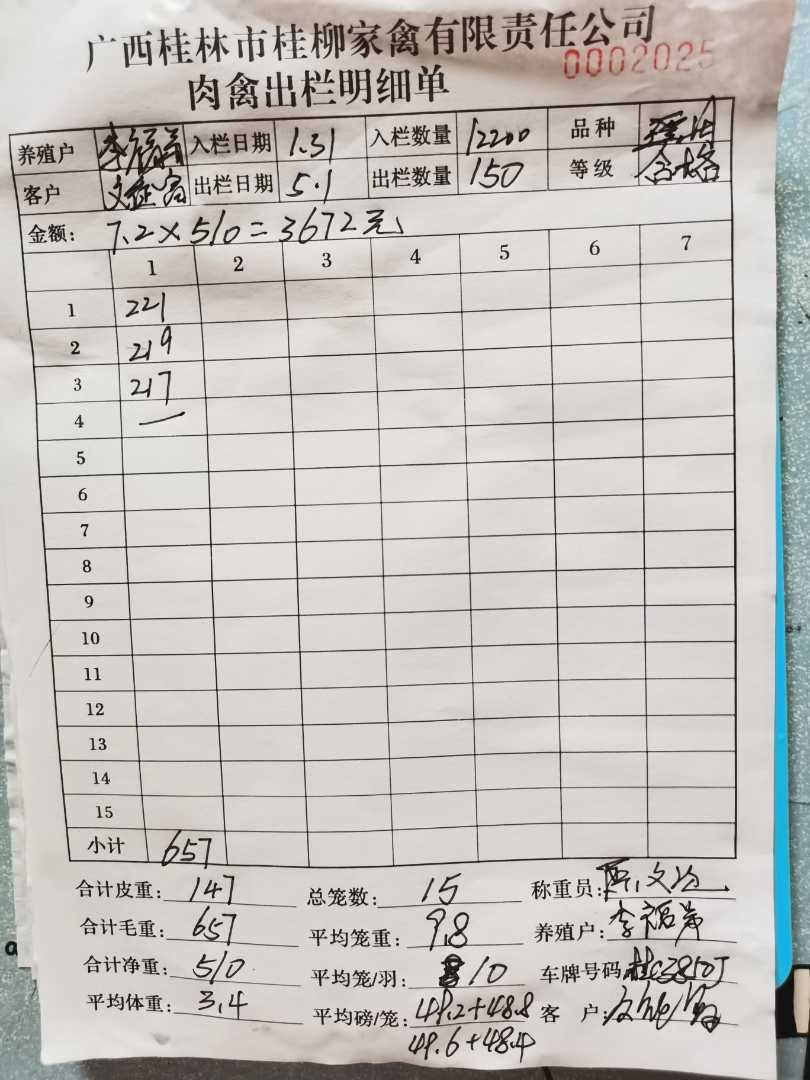 广西桂林市桂柳家禽有限责任公司
0002025
肉禽出栏明细单
养殖户 李福 入栏日期 1.31 入栏数量 12200 品种
客户 文 出栏日期 5.1 出栏数量 150 等级 合格
金额: 7.2×510=3672元
1 2 3 4 5 6 7
1 221
2 219
3 217
4 —
5
6
7
8
9
10
11
12
13
14
15
小计 657
合计皮重: 147 总笼数: 15 称重员: 文
合计毛重: 657 平均笼重: 9.8 养殖户: 李福
合计净重: 510 平均笼/羽: 10 车牌号码 桂C3850J
平均体重: 3.4 平均磅/笼: 49.2+48.8 客 户:
49.6+48.4